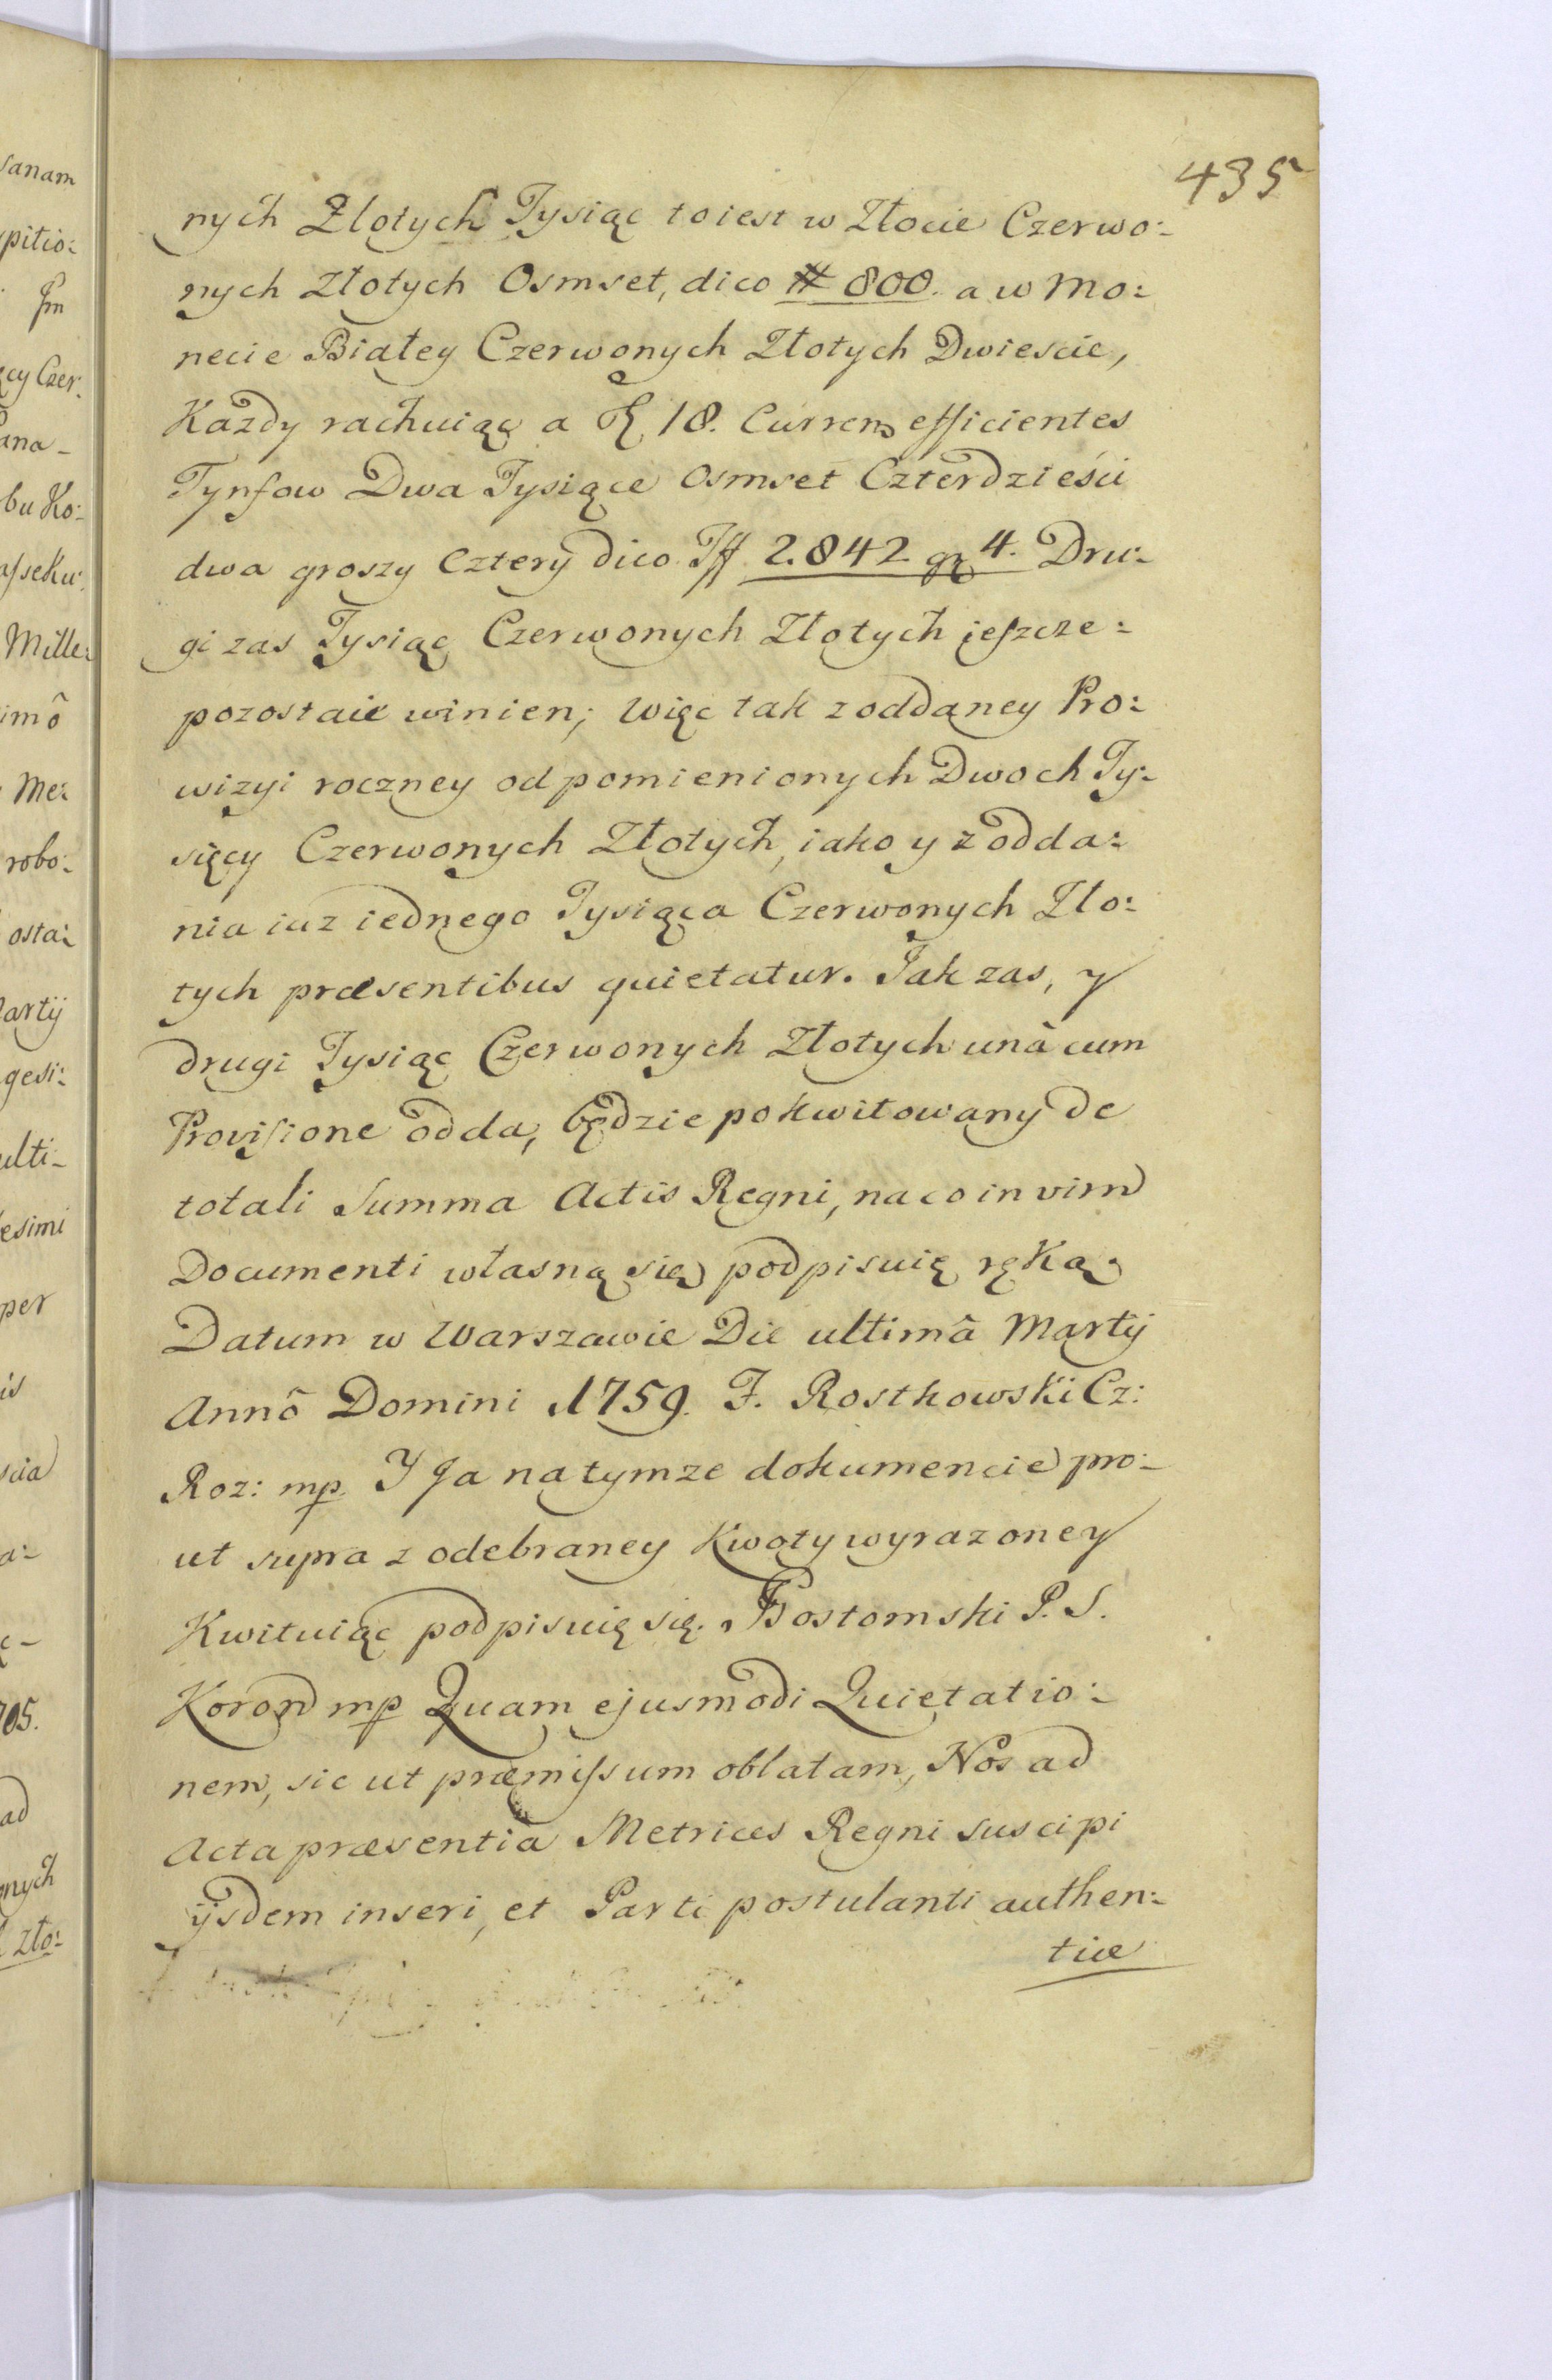 435
nych Złotych Tysiąc toiest w Złocie Czerwo:
nych Złotych Osmset, dico # 800. a w Mo:
necie Białey Czerwonych Złotych Dwiescie,
Każdy rachuiąc a 18. Currens efficientes
Tynfow Dwa Tysiące Osmset Czterdzieści
dwa groszy Cztery dico Tff 2.842 gr 4. Dru:
gi zas Tysiąc Czerwonych Złotych jeszcze:
pozostaie winien; Więc tak z oddaney Pro:
wizyi roczney od pomienionych Dwoch Ty:
sięcy Czerwonych Złotych, iako y z odda:
nia iuz iednego Tysiąca Czerwonych Zło:
tych præsentibus quietatur. Jak zas, y
drugi Tysiąc Czerwonych Złotych unà cum
Provisione odda, będzie pokwitowany de
totali Summa Actis Regni, na co in vim
Documenti własną się podpisuię ręką.
Datum w Warszawie Die ultimâ Martij
Annô Domini 1759. F. Rostkowski Cz:
Roz: mp. Y Ja na tymze dokumencie pro:
ut supra z odebraney Kwoty wyrazoney
Kwituiąc podpisuię się. Bostomski P. S.
Koron mp Quam ejusmodi Quietatio:
nem, sic ut præmissum oblatam, Nos ad
Acta præsentia Metrices Regni suscipi
ijsdem inseri, et Parti postulanti authen:
tice
sanam
pitio:
ący Czer:
ana-
bu Ko:
asseku:
Mille:
imô
Me:
robo:
osta:
artij
gesi:
ulti-
esimi
per
is
scia
a:
705.
ad
nych
zło: